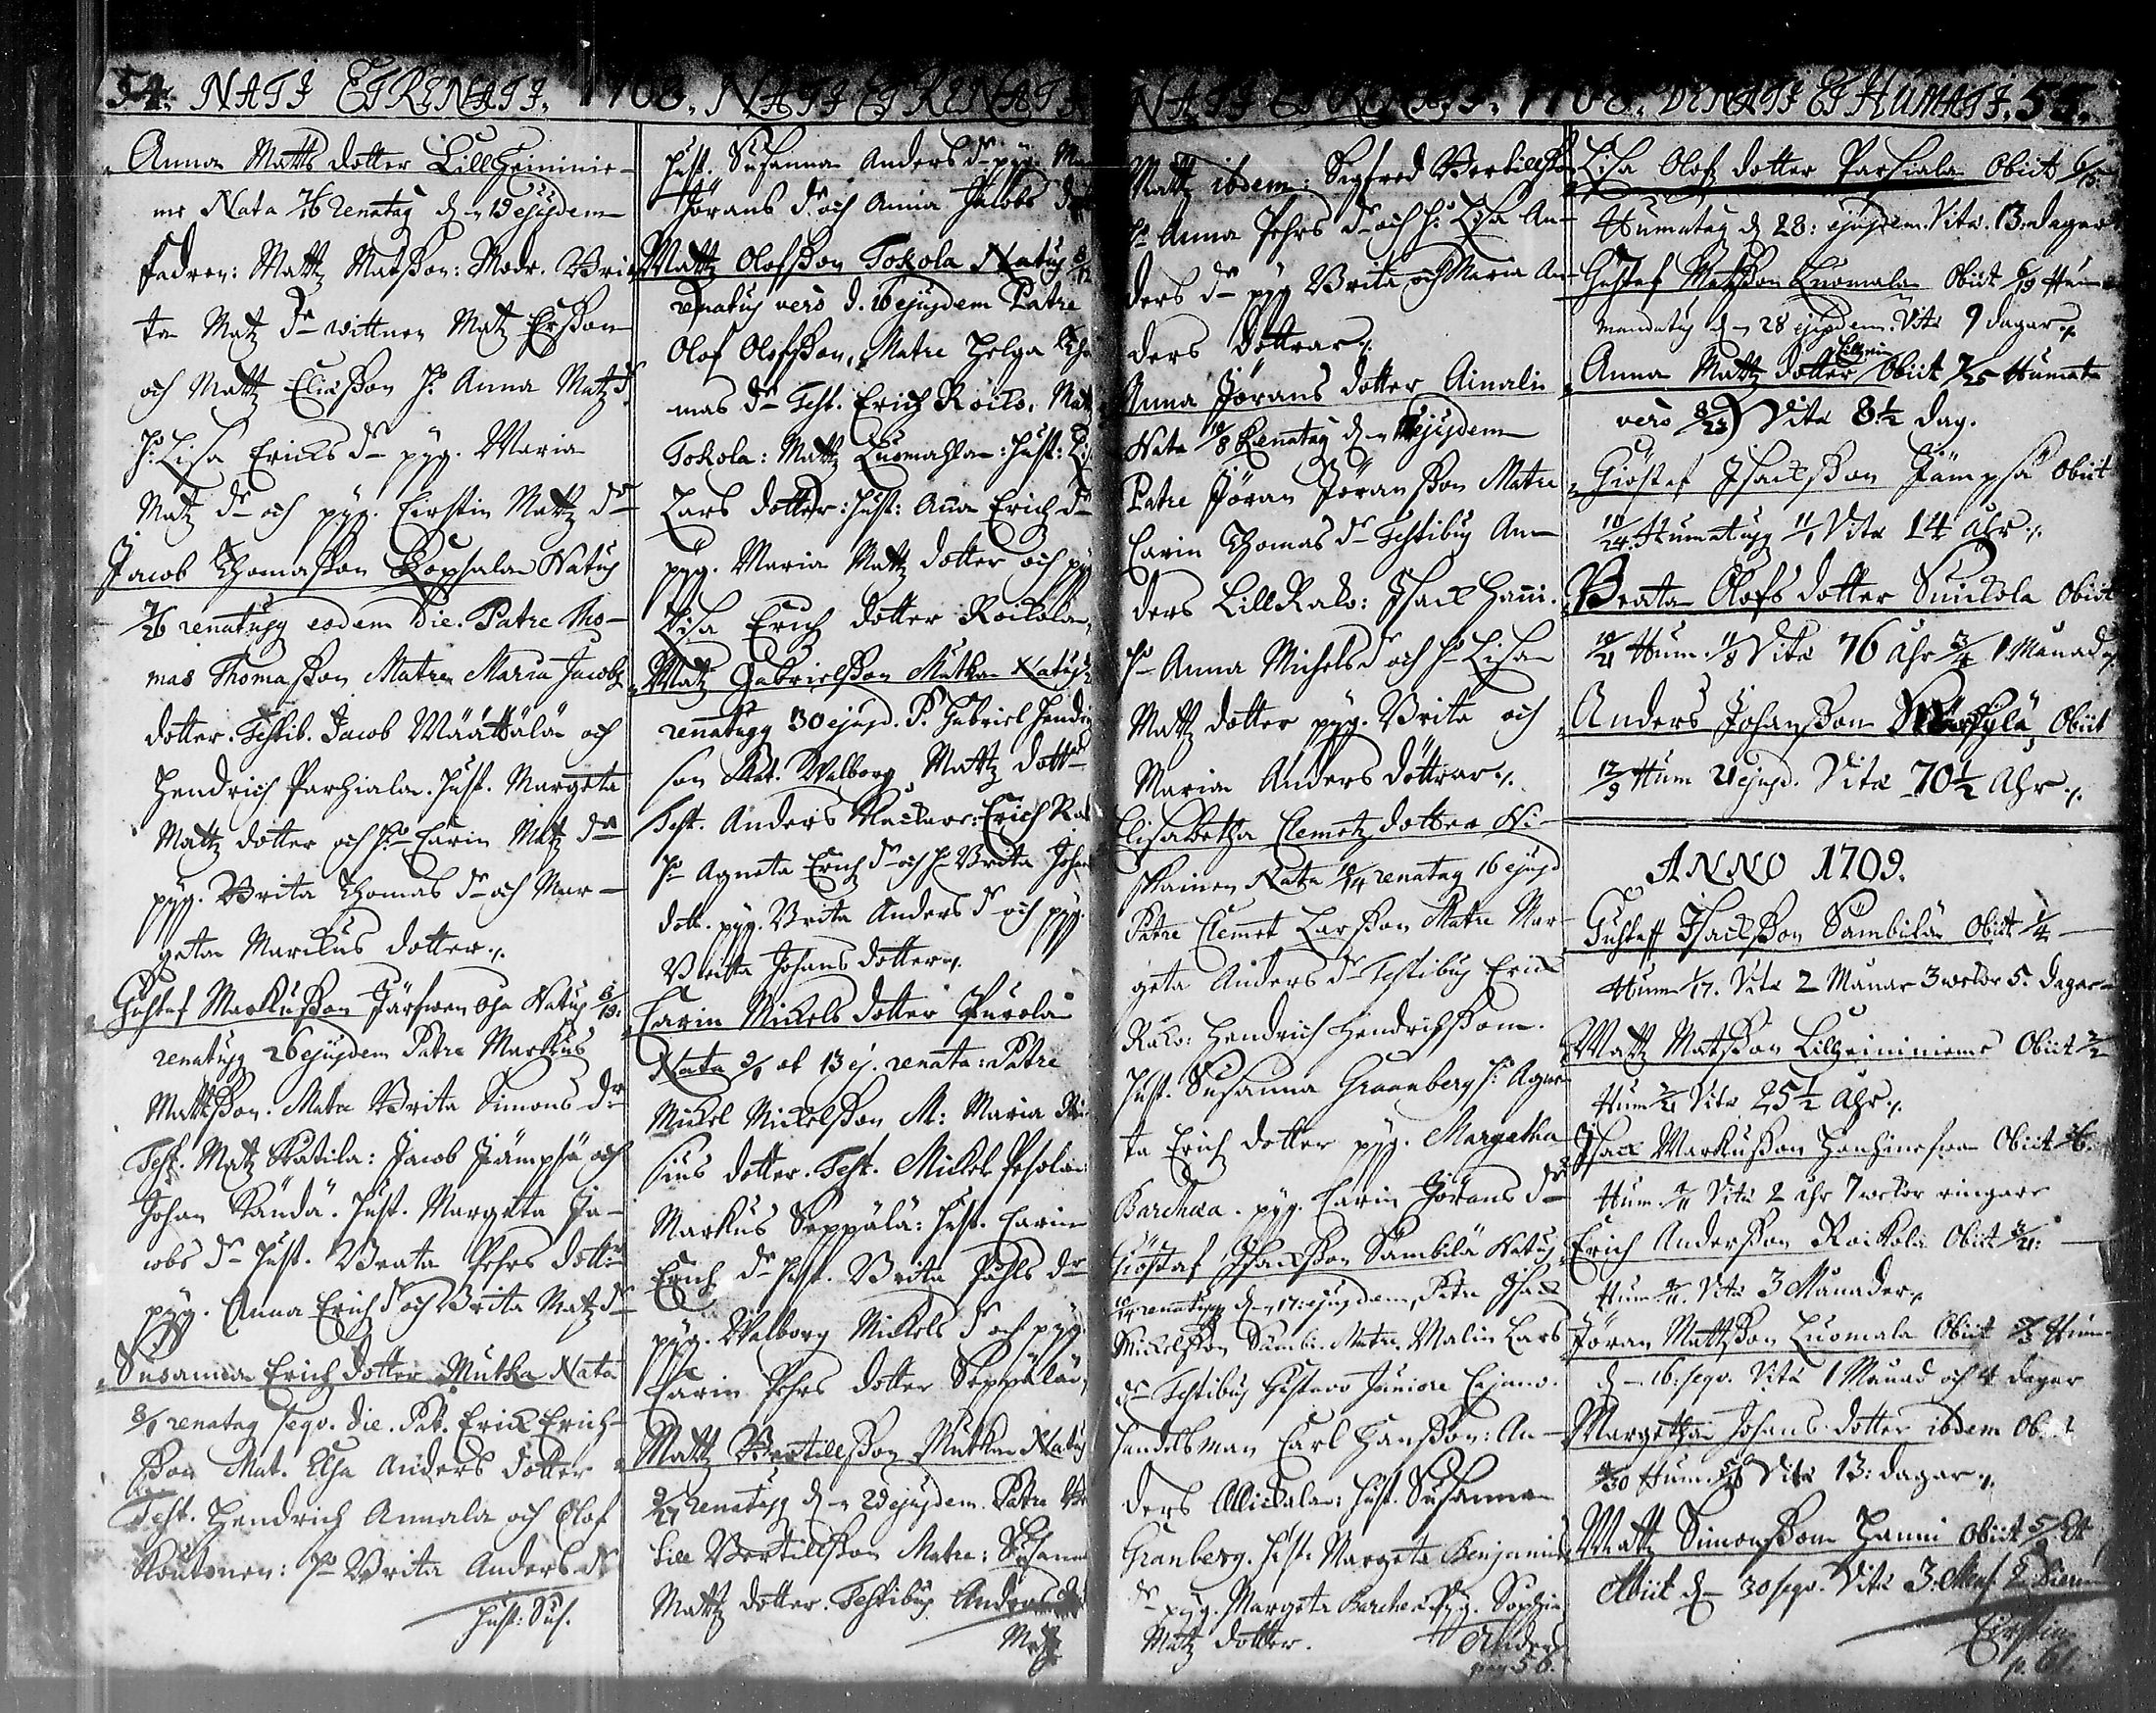 54. NATI ET RENATI. 1708. NATI ET RENATI
Anna Matts dotter Lillheinie-
me Nata 7/16 renatag d. 19 ejusdem
fadren: Mattz Matsson: Modr. Bri-
ta Matz dr wittnen Matz Ersson
och Mattz Eliæsson H. Anna Matz d.
H. Lisa Erichs dr pyg. Maria
Matz dr och pyg. Cirstin Mattz dr
Jacob Thomasson Kopsala Natus
7/26 renatusq eodem die. Patre Tho-
mas Thomasson Matre Maria Jacobs
dotter. Testib. Jacob Määttälä och
Hendrich Parhiala. Hust. Margeta
Mattz dotter och Ho Carin Matz dr
pyg. Brita Thomas dr och Mar-
geta Marckus dotter.
Gustaf Markusson Järfwen oja Natus 8/19.
renatusq 26 ejusdem Patre Markus
Mattsson. Matre Brita Simons dr
Test. Matz Skatila: Jacob Jämpsä och
Johan Kändä. Hust. Margeta Ja-
cobs dr Hust. Beata Pehrs dott.
pyg. Anna Erich dr och Brita Matz dr
Susanna Erich dotter Mutka Nata
8/ renatag seqv. die. Pat. Erick Erich-
sson Mat. Elsa Anders dotter
Test. Hendrich Annala och Olof
Ho Brita Anders dr
Hust: Sus.
Hust. Susanna Anders dr pyg.
Jörans dr och Anna Jacobs
Mattz Olofsson Tokola Natus 8/12
renatus verò d. 16 ejusdem Patre
Olof Olofsson, Matre Helga Tho
mas dr Test. Erich Roiko, Mat
Tokola: Mattz Luomahla: Hust: Lis
Lars dotter: Hust: Anna Erich dr
pyg. Maria Mattz dotter och pyg
Lisa Erich dotter Roikola
Matz Gabrielsson Mutka Natus
renatusq 30 ejusd. P. Gabriel Hendri
son Mat. Walborg Mattz dott
Test. Anders Erich
Ho Agneta Erich dr och Ho Brita Johan
dott. pyg. Brita Anders dr och pyg.
Britta Johans dotter
Carin Mickels dotter Purola
Nata 9/ et 13 ej. renata: Patre
Mickel Mickelsson M: Maria
sius dotter. Test. Mickel Pesola
Markus Seppälä: Hust. Carin
Erich dr Hust. Brita Påhls dr
pyg. Walborg Mickels dr och pyg.
Carin Pehrs dotter Seppälä
Mattz Bertillsson Mutka Natus
9/21 renatusq d. 29 ejusdem. Patre Ber
till Bertillsson Matre: Susanna
Mattz dotter. Testibus
Mattz
NATI ET RENATI. 1708. DENATI ET HUMATI. 55.
Mattz ibdem: Segfred Bertillsson
Ho Anna Pehrs dr och Ho Lisa An-
ders dr pyg Brita och Maria An-
ders döttrar
Anna Jörans dotter Ainali
Nata 10/8 Renatag d. ejusdem
Patre Jöran Jöransson Matre
Carin Thomas dr Testibus An-
ders Lill Rako: Isack Hanni.
Ho Anna Michels dr och Ho Lisa
Mattz dotter pyg. Brita och
Maria Anders döttrar
Elisabetha Clemetz dotter Ni-
skainen Nata 10/14 renatag 16 ejusd
Patre Clemet Larsson Matre Mar-
geta Anders dr Testibus Erick
Rako: Hendrich Hendrichsson.
Hust. Susanna Graanberg H: Agne-
ta Erich dotter pyg. Margetha
Barchæa. pyg. Carin Jörans dr
Giöstaf Isacksson Sämbilä Natus
10/14 renatusq d. 17 ejusdem, Patre Isack
Mickelsson Sämbi. Matre. Malin Lars
dr Testibus Gustavo Juniore Cajano.
Handelsman Carl Hansson: An-
ders Mickala: Hust. Susanna
Granberg. Hust. Margeta Benjamins
dr pyg. Margeta Barchæa pyg. Sophia
Matz dotter. Anders
pag 56.
Lisa Olofs dotter Parhiala Obiit 6/15
Humatag d 28: ejusdem. Vitæ. 13. dagar
Gustaf Matsson Luomala Obiit 6/19 Hu
mandatus d. 28 ejusdem. Vitæ 9 dagar
Anna Mattz dotter Lillheini Obiit 7/25 Humata
verò 8/23) Vitæ 8½ dag.
Giöstaf Isacksson Jämpsä Obiit
10/24. Humatusq 11/1 Vitæ 14 åhr
Beata Olofs dotter Sunckola Obiit
10/21 Hum: 11/8 Vitæ 76 åhr 3/4 1 Månad
Anders Johansson Obiit
12/9 Hum 21 ejusd. Vitæ 70½ Åhr
ANNO 1709.
Gustaff Isacksson Sämbilä Obiit 1/4
Hum 1/17. Vitæ 2 Månar 3 wekor 5. dagar
Mattz Matsson Lillheininieme Obiit 2/2
Hum 2/21 Vitæ 25½ Åhr
Isack Markusson Obiit 3/6.
Hum. Vitæ 2 åhr 7 wekor ringare
Erich Andersson Roikola Obiit 3/21:
Hum. Vitæ 3 Månader
Jöran Mattsson Luomala Obiit Hum
d. 16. seqv. Vitæ 1 Månad och 4 dagar
Margetha Johans dotter ibdem Ob
4/30 Hum. Vitæ 13: dagar
Matz Simonsson Hanni Obiit
Obiit d. 30 seqv. Vitæ 3. Mens.
Cirstin
p. 61.